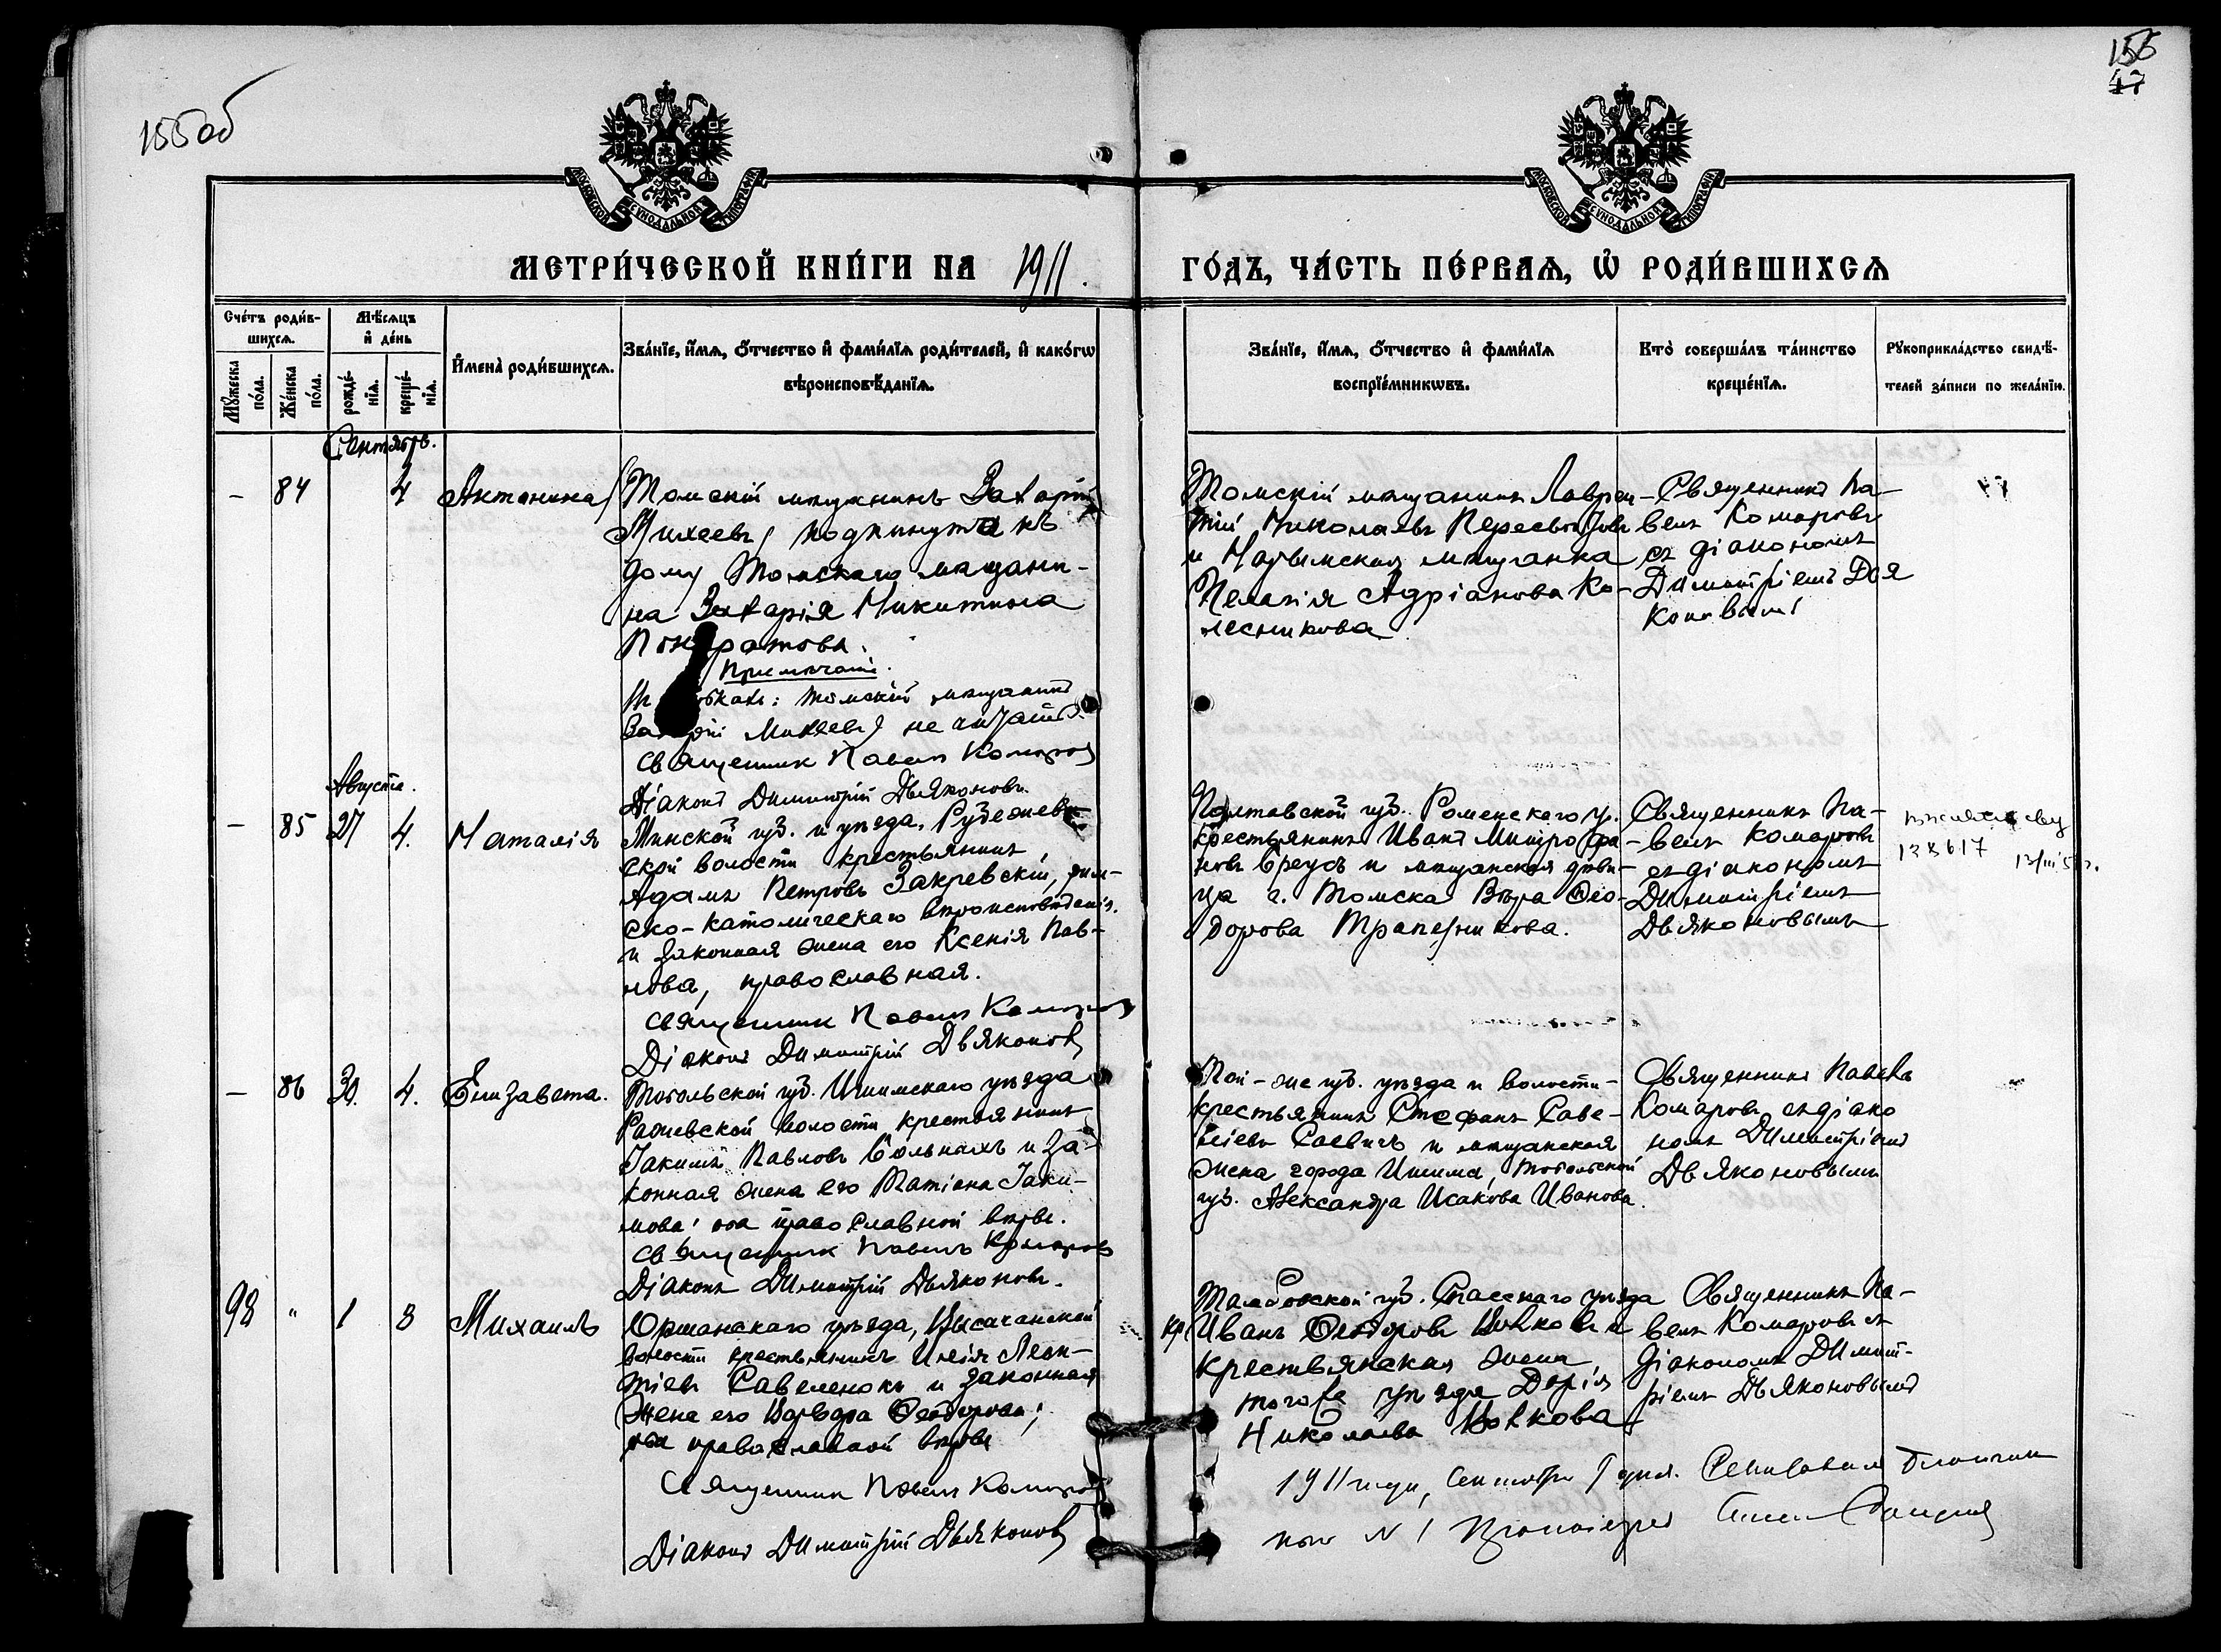 155об
156
47
МОСКОВСКОЙ СѴНОДАЛЬНОЙ ТИПОГРАФІИ
МОСКОВСКОЙ СѴНОДАЛЬНОЙ ТИПОГРАФІИ
МЕТРИ́ЧЕСКОЙ КНИ́ГИ НА 1911.
ГО́ДЪ, ЧА́СТЬ ПЕ́РВАѦ, Ѡ҆ РОДИ́ВШИХСѦ
Сче́тъ роди́в-
шихсѧ.
Мꙋ́жеска по́ла.
Же́нска по́ла.
Мѣ́сѧцъ
и҆ де́нь
рожде́-
нїѧ.
креще́-
нїѧ.
И҆мена̀ роди́вшихсѧ.
Зва́нїе, и҆́мѧ, ѻ҆́тчество и҆ фами́лїѧ роди́телей, и҆ како́гѡ
вѣроисповѣ́данїѧ.
Зва́нїе, и҆́мѧ, ѻ҆́тчество и҆ фами́лїѧ
воспрїе́мникѡвъ.
Кто̀ соверша́лъ та́инство
креще́нїѧ.
Рꙋкоприкла́дство свидѣ́-
телей за́писи по жела́нїю.
Сентябрь.
– 84 4 Антонина
Томскій мѣщанинъ Захарій
Михеевъ) подкинута къ
дому Томскаго мѣщани-
на Захарія Никитина
Примѣчаніе.
Томскій мѣщанинъ
Михеевъ) не читать.
Священник Павел Комаров
Діаконъ Димитрій Дьяконовъ.
Томскій мѣщанинъ Лаврен-
тій Николаевъ
и Нарымская мѣщанка
Пелагія Адріанова Ко-
лесникова
Священникъ Па-
велъ Комаровъ
съ діакономъ
Димитріемъ Дья
коновымъ
Августа.
– 85 27 4. Наталія
Минской губ. и уѣзда,
ской волости крестьянинъ
Адамъ Петровъ Закревскій, рим-
ско-католическаго вѣроисповѣданія,
и законная жена его Ксенія Пав-
лова, православная.
Священник Павел Комаров
Діаконъ Димитрій Дьяконов
Полтавской губ. Роменскаго у.
крестьянинъ Иванъ Митрофа-
новъ и мѣщанская дѣви-
ца г. Томска Вѣра Ѳео-
дорова Трапезникова.
Священникъ Па-
велъ Комаровъ
съ діакономъ
Димитріемъ
Дьяконовымъ
– 86 30. 4. Елизавета.
Тобольской губ. Ишимскаго уѣзда
волости крестьянинъ
Іакимъ Павловъ и за-
конная жена его Татіана Іаки-
мова; оба православной вѣры.
Священник Павелъ Комаров
Діаконъ Димитрій Дьяконовъ.
Той-же губ. уѣзда и волости-
крестьянинъ Стефанъ Саве-
ліевъ и мѣщанская
жена города Ишима, Тобольской
губ. Александра Исакова Иванова.
Священникъ Павелъ
Комаровъ съ діако
номъ Димитріемъ
Дьяконовымъ
98 " 1 8 Михаилъ
Оршанскаго уѣзда,
волости крестьянинъ Илія Леон-
тіевъ Савеленокъ и законная
жена его Варвара Ѳеодорова;
оба православной вѣры
Священник Павел Комаров
Діаконъ Димитрій Дьяконов
Тамбовской губ. Спасскаго уѣзда
кр. Иванъ Ѳеодоровъ и
крестьянская жена,
того же уѣзда Дарія
Николаева
Священникъ Па-
велъ Комаровъ съ
діакономъ Димит-
ріемъ Дьяконовымъ
1911 года, Сентября 9 дня.